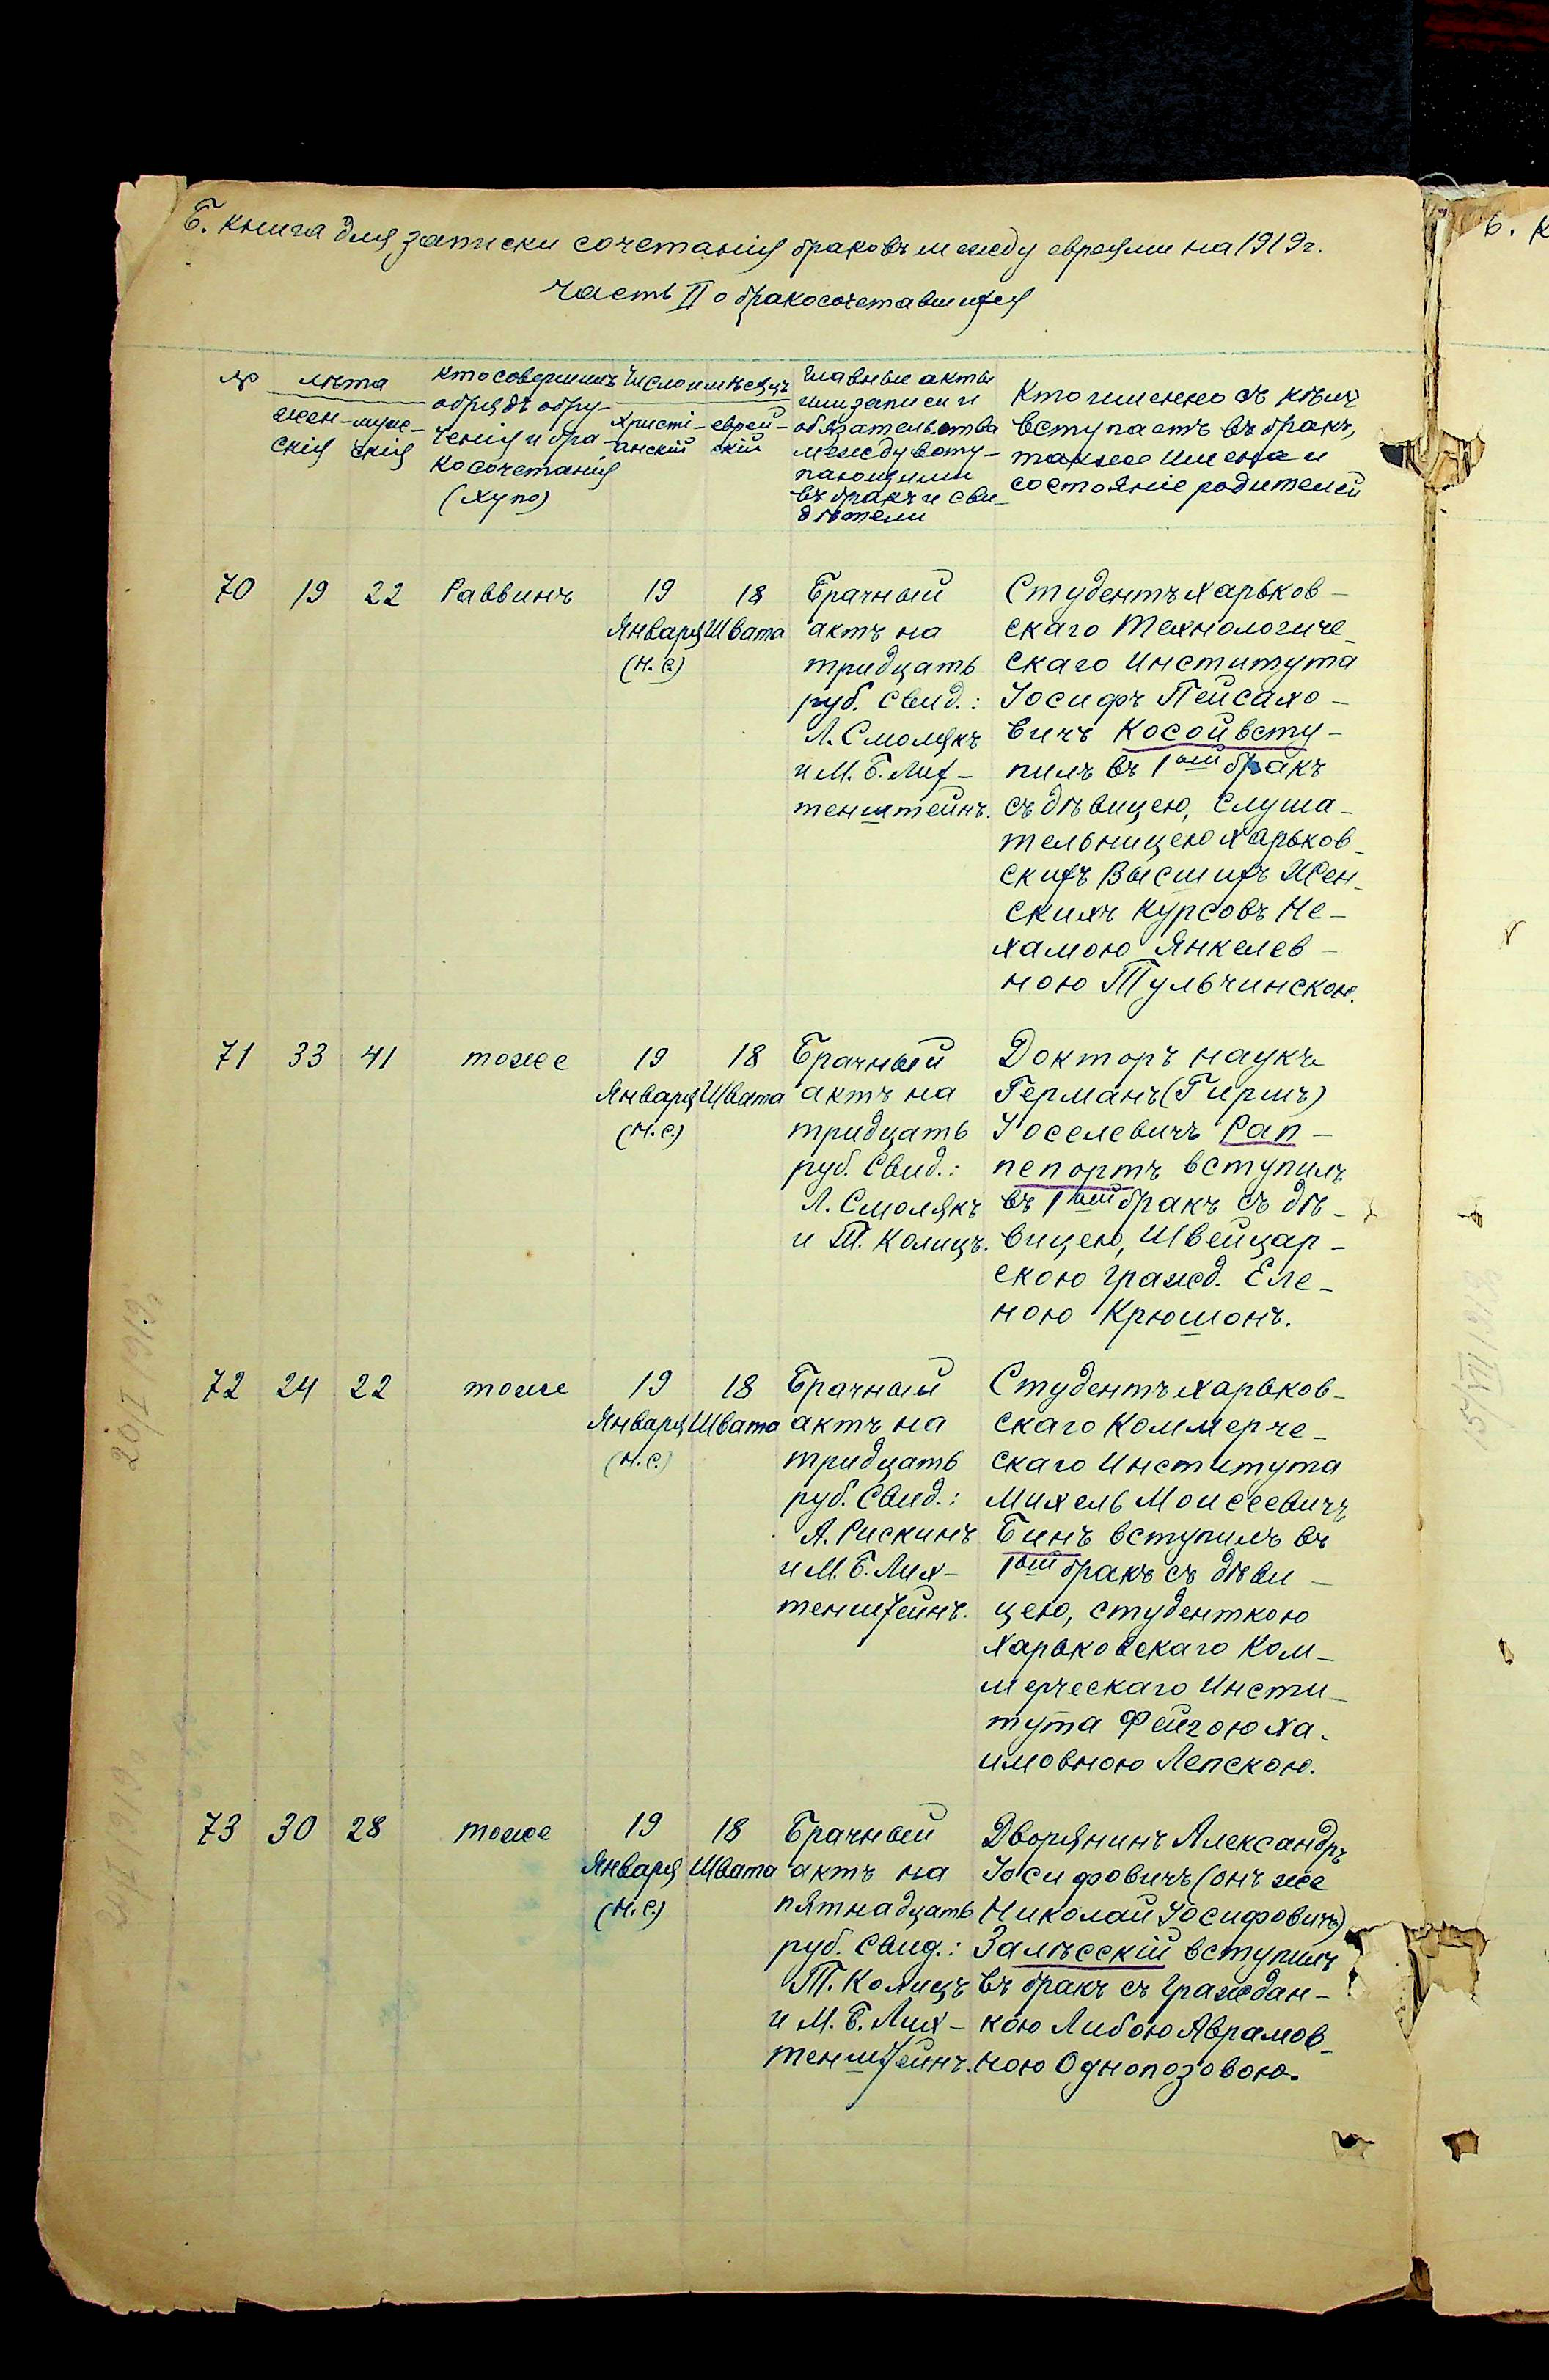 Б. Книга для записки сочетанія браковъ между евреями на 1919 г.
Часть II о бракосочетавшихся
№
лѣта
жен-
скія
муже-
скія
Кто совершилъ
обрядъ обру-
ченія и бра-
косочетанія
(хупо)
Число и мѣсяцъ
Христі-
анскій
еврей-
скій
Главные акты
или записи и
обязательства
между всту-
пающими
въ бракъ и сви-
дѣтели
Кто именно съ кѣмъ
вступаетъ въ бракъ,
также имена и
состояніе родителей
70 19 22 Раввинъ
19
Января
(н.с.)
18
Швата
Брачный
актъ на
тридцать
руб. Свид.:
Л. Смолякъ
и М. Б. Лих-
тенштейнъ.
Студентъ Харьков-
скаго Технологиче-
скаго Института
Іосифъ Пейсахо-
вичъ Косой всту-
пилъ въ 1ый бракъ
съ дѣвицею, слуша-
тельницею Харьков-
скихъ Высшихъ Жен-
скихъ Курсовъ Не-
хамою Янкелев-
ною Тульчинскою.
71 33 41 тоже
19
Января
(н.с.)
18
Швата
Брачный
актъ на
тридцать
руб. Свид.:
Л. Смолякъ
и Т. Колицъ.
Докторъ наукъ
Германъ (Гиршъ)
Іоселевичъ Рап-
пепортъ вступилъ
въ 1ый бракъ съ дѣ-
вицею, Швейцар-
скою гражд. Еле-
ною Крюшонъ.
72 24 22 тоже
19
Января
(н.с.)
18
Швата
Брачный
актъ на
тридцать
руб. Свид.:
А. Рискинъ
и М. Б. Лих-
тенштейнъ.
Студентъ Харьков-
скаго Коммерче-
скаго Института
Михель Моисеевичъ
Бинъ вступилъ въ
1ый бракъ съ дѣви-
цею, студенткою
Харьковскаго Ком-
мерческаго Инсти-
тута Фейгою Ха-
имовною Лепскою.
73 30 28 тоже
19
Января
(н.с.)
18
Швата
Брачный
актъ на
пятнадцать
руб. Свид.:
Т. Колицъ
и М. Б. Лих-
тенштейнъ.
Дворянинъ Александръ
Іосифовичъ (онъ же
Николай Іосифовичъ)
Залѣсскій вступилъ
въ бракъ съ граждан-
кою Либою Аврамов-
ною Однопозовою.
20/I 1919